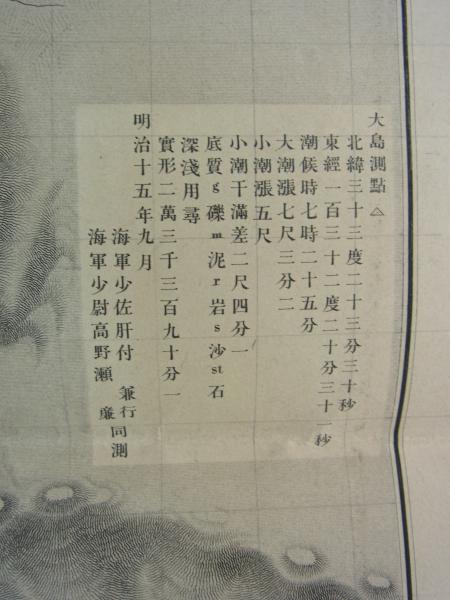 大島測點△
北緯三十三度二十三分三十秒
東經一百三十二度二十分三十一秒
潮候時七時二十五分
大潮漲七尺三分二
小潮漲五尺
小潮干滿差二尺四分一
底質 g 礫 m 泥 r 岩 s 沙 st 石
深淺用尋
實形二萬三千三百九十分一
明治十五年九月
海軍少佐肝付兼行同測
海軍少尉高野瀬廉